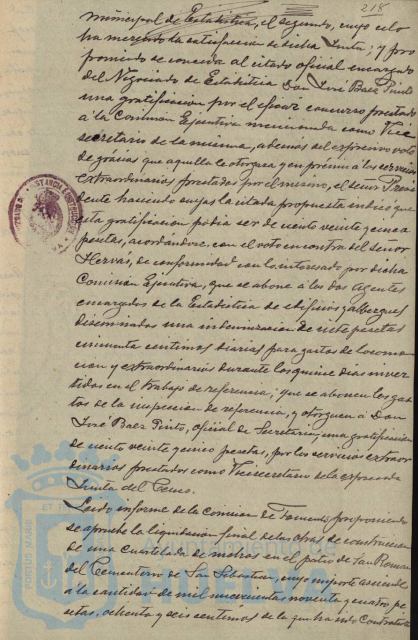 218
municipal de Estadística, el segundo, cuyo celo
ha merecido la satisfacción de dicha Junta; y pro
poniendo se conceda al citado oficial encargado
del Negociado de Estadística Don José Baez Pinto
una gratificación por el eficaz concurso prestado
á la Comisión Ejecutiva mencionada como Vice
secretario de la misma, además del expresivo voto
de gracias que aquella le otorgara y en prémio á los servicios
extraordinarios prestados por el mismo, el señor Presi
dente haciendo suya la citada propuesta indicó que
esta gratificación podia ser de ciento veinte y cinco
pesetas, acordandose, con el voto en contra del señor
Hervás, de conformidad con lo interesado por dicha
Comisión Ejecutiva, que se abone á los dos agentes
encargados de la Estadística de edificios y albergues
diseminados una indemnizacion de siete pesetas
cincuenta centimos diarias para gastos de locomo
cion y extraordinarios durante los quince dias inver
tidos en el trabajo de referencia; que se abonen los gas
tos de la inspeccion de referencia, y otorguen á Don
José Baez Pinto, oficial de Secretaria, una gratificación
de ciento veinte y cinco pesetas, por los servicios extraor
dinarios prestados como Vicesecretario de la expresada
Junta del Censo.
Leido informe de la Comision de Fomento proponiendo
se apruebe la liquidacion final de las obras de construccion
de una cuartelada de nichos en el patio de San Roman
del Cementerio de San Sebastian, cuyo importe asciende
á la cantidad de mil novecientas noventa y cuatro pe
setas, ochenta y seis centimos de la que ha sido Contratista
PORTUS MARIS ET
Ayuntamiento de